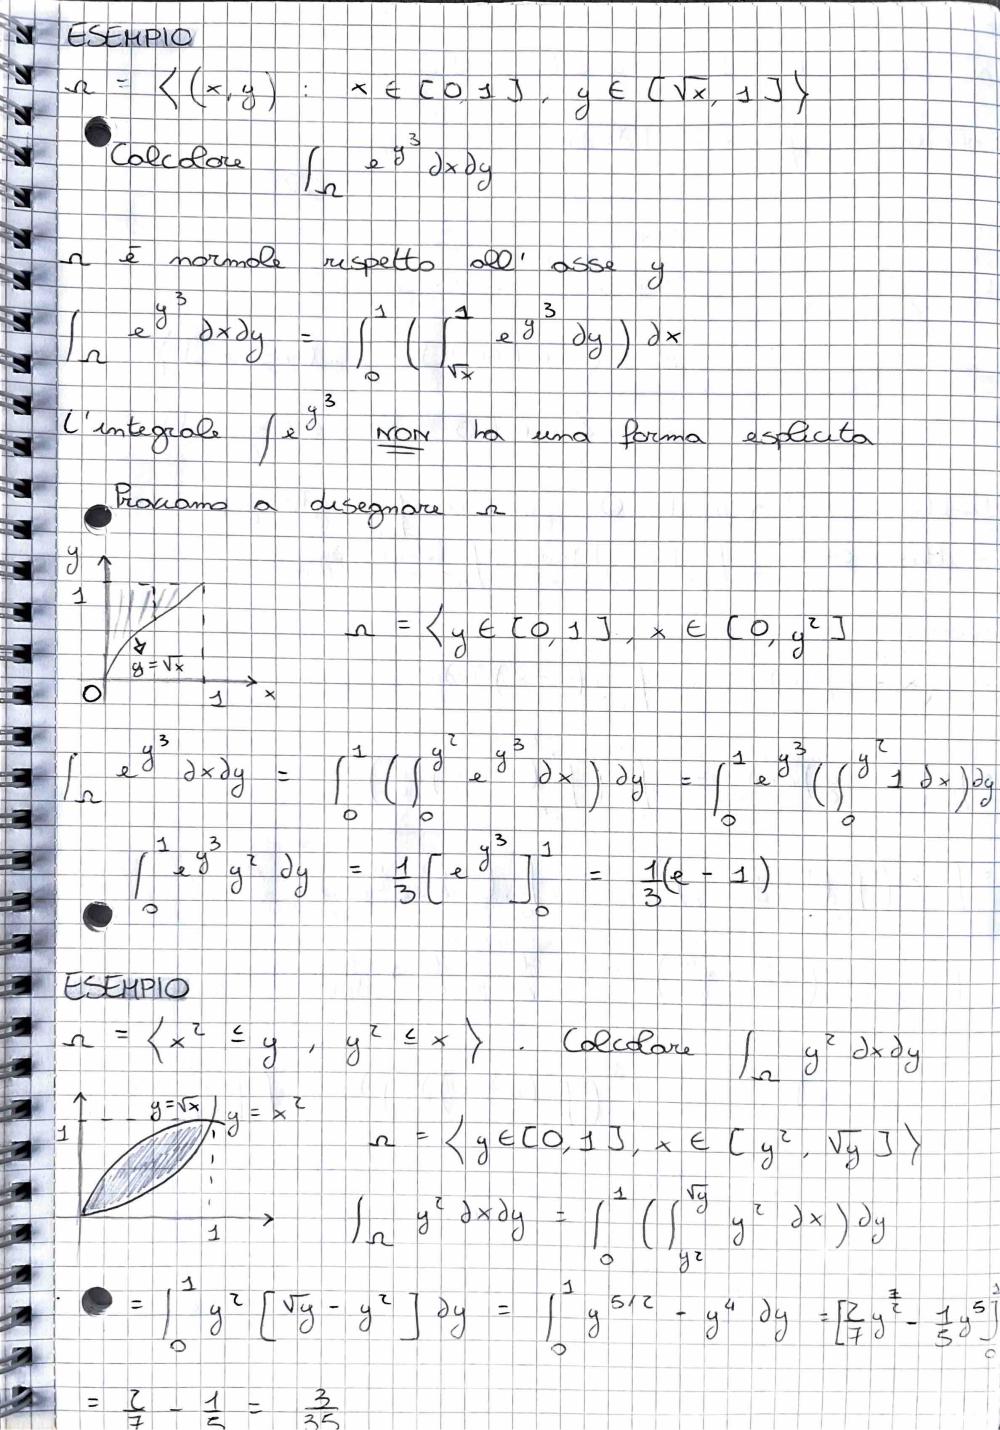 ESEMPIO
Ω = {(x,y) : x ∈ [0,1], y ∈ [√x, 1]}
Calcolare ∫_Ω e^{y^3} dxdy
Ω è normale rispetto all' asse y
∫_Ω e^{y^3} dxdy = ∫_0^1 (∫_{√x}^1 e^{y^3} dy) dx
L'integrale ∫e^{y^3} NON ha una forma esplicita
Proviamo a disegnare Ω
y
1
y=√x
0 1 x
Ω = {y ∈ [0,1], x ∈ [0, y²]
∫_Ω e^{y^3} dxdy = ∫_0^1 (∫_0^{y²} e^{y^3} dx) dy = ∫_0^1 e^{y^3} (∫_0^{y²} 1 dx) dy
∫_0^1 e^{y^3} y² dy = 1/3 [e^{y^3}]_0^1 = 1/3(e - 1)
ESEMPIO
Ω = {x² ≤ y, y² ≤ x}. Calcolare ∫_Ω y² dxdy
y=√x y = x²
1
1
Ω = {y∈[0,1], x ∈ [y², √y]}
∫_Ω y² dxdy = ∫_0^1 (∫_{y²}^{√y} y² dx) dy
= ∫_0^1 y² [√y - y²] dy = ∫_0^1 y^{5/2} - y⁴ dy = [2/7 y^{7/2} - 1/5 y⁵]_0^1
= 2/7 - 1/5 = 3/35